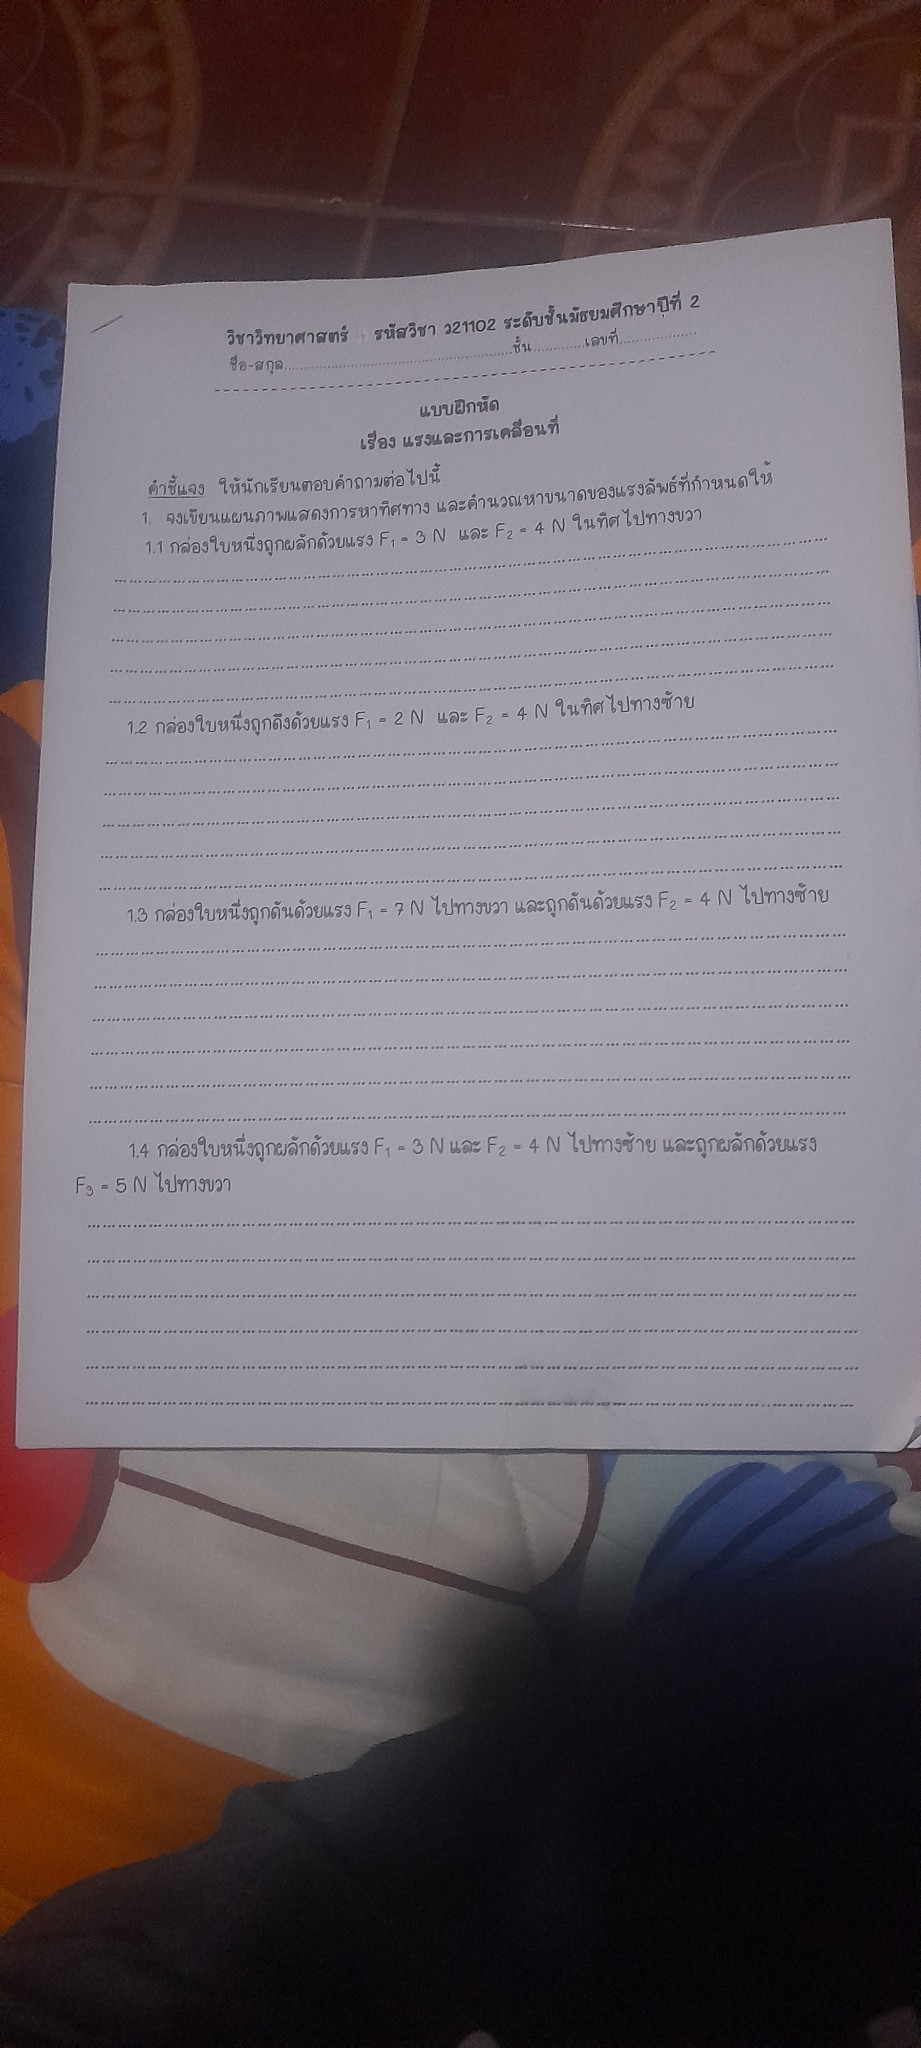 วิชาวิทยาศาสตร์ รหัสวิชา ว21102 ระดับชั้นมัธยมศึกษาปีที่ 2
ชื่อ-สกุล..........................................................ชั้น.............เลขที่....................
แบบฝึกหัด
เรื่อง แรงและการเคลื่อนที่
คำชี้แจง ให้นักเรียนตอบคำถามต่อไปนี้
1. จงเขียนแผนภาพแสดงการหาทิศทาง และคำนวณหาขนาดของแรงลัพธ์ที่กำหนดให้
1.1 กล่องใบหนึ่งถูกผลักด้วยแรง F₁ = 3 N และ F₂ = 4 N ในทิศไปทางขวา
1.2 กล่องใบหนึ่งถูกดึงด้วยแรง F₁ = 2 N และ F₂ = 4 N ในทิศไปทางซ้าย
1.3 กล่องใบหนึ่งถูกดันด้วยแรง F₁ = 7 N ไปทางขวา และถูกดันด้วยแรง F₂ = 4 N ไปทางซ้าย
1.4 กล่องใบหนึ่งถูกผลักด้วยแรง F₁ = 3 N และ F₂ = 4 N ไปทางซ้าย และถูกผลักด้วยแรง
F₃ = 5 N ไปทางขวา